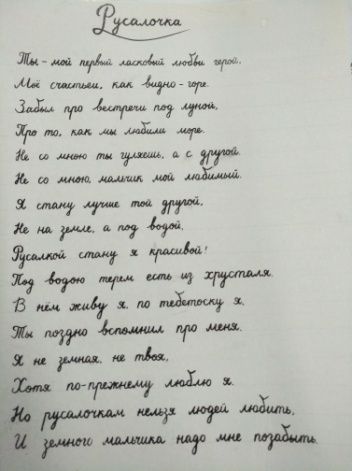 Русалочка
Ты - мой первый ласковый любви герой,
Моё счастьеи, как видно - горе.
Забыл про встречи под луной,
Про то, как мы любили море.
Не со мною ты гуляешь, а с другой.
Не со мною, мальчик мой любимый.
Я стану лучше той другой,
Не на земле, а под водой,
Русалкой стану я красивой!
Под водою терем есть из хрусталя.
В нём живу я, по тебетоску я,
Ты поздно вспомнил про меня.
Я не земная, не твоя,
Хотя по-прежнему люблю я.
Но русалочкам нельзя людей любить,
И земного мальчика надо мне позабыть.